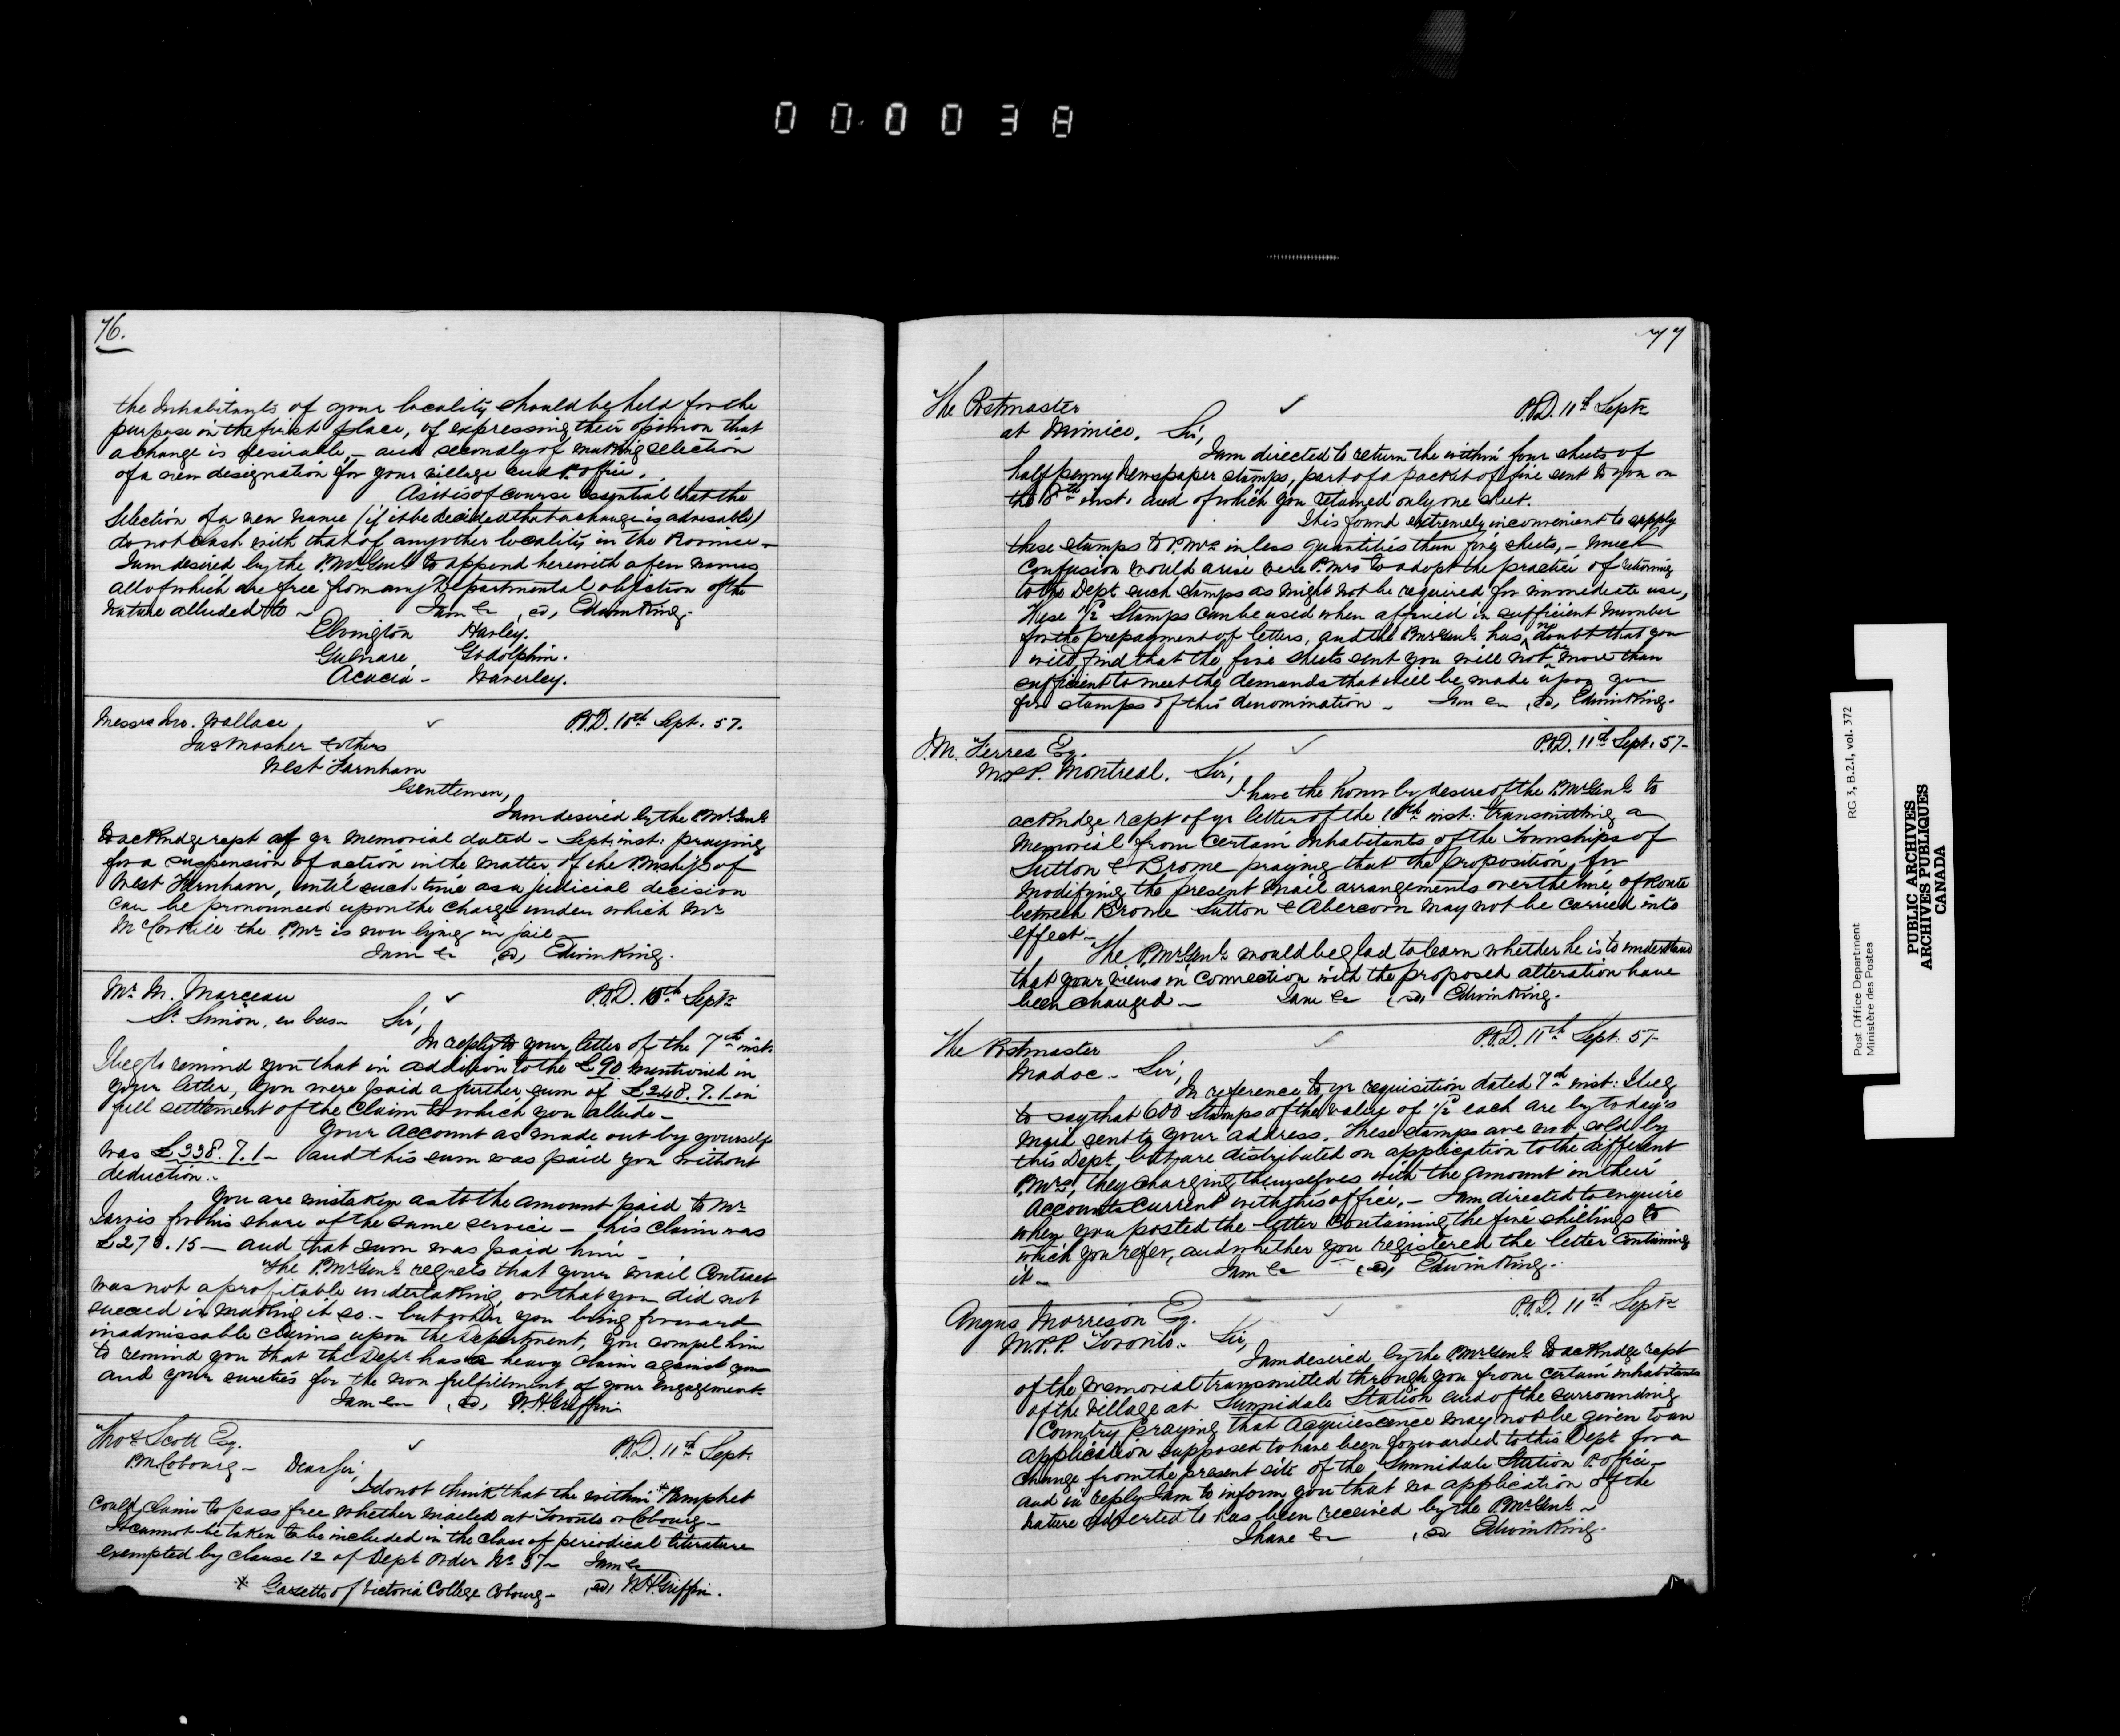 000038
76.
the Inhabitants of your locality should be held for the
purpose in the first place, of expressing their opinion that
a change is desirable, – and secondly of making selection
of a new designation for your village and P. office.
As it is of course essential that the
Selection of a new name (if it be decided that a change is advisable)
do not clash with that of any other locality in the Province –
I am desired by the P.Mr Genl to append herewith a few names
all of which are free from any Departmental objection of the
nature alluded to – I am &c (sd) Edwin King.
Elvington Harley.
Gulnare Godolphin.
Acacia – Waverley.
Messrs Jno. Wallace, ✓ P.O.D. 10th Sept. 57.
Jas Mosher & others
West Farnham
Gentlemen,
I am desired by the P.Mr Genl
to ackndge rept of yr Memorial dated – Sept. inst: praying
for a suspension of action in the matter of the P.Mship of
West Farnham, until such time as a judicial decision
can be pronounced upon the charge under which Mr
McCorkill the P.Mr is now lying in jail –
I am &c (sd) Edwin King.
Mr M. Marceau ✓ P.O.D. 10th Septr
St Simon, en bas – Sir,
In reply to your letter of the 7th inst.
I beg to remind you that in addition to the £90 mentioned in
your letter, you were paid a further sum of £248.7.1 in
full settlement of the Claim to which you allude –
Your Account as made out by yourself
was £338.7.1 – and this sum was paid you without
deduction. –
You are mistaken as to the amount paid to Mr
Jarvis for his share of the same service – his claim was
£270.15 – and that sum was paid him –
The P.Mr Genl regrets that your mail Contract
was not a profitable undertaking, or that you did not
succeed in making it so. – but when you bring forward
inadmissable claims upon the Department, you compel him
to remind you that the Dept has a heavy claim against you
and your sureties for the non fulfillment of your engagement.
I am &c (sd) W.H. Griffin
Thos Scott Esq. ✓ P.O.D. 11th Sept.
P.M. Cobourg – Dear Sir,
I do not think that the within * Pamphet
could claim to pass free whether mailed at Toronto or Cobourg –
It cannot be taken to be included in the class of periodical literature
exempted by clause 12 of Dept Order No 37 – I am &c
* Gazette of Victoria College Cobourg – (sd) W.H. Griffin.
77
The Postmaster ✓ P.O.D. 11th Septr
at Mimico. Sir,
I am directed to return the within four sheets of
half penny Newspaper stamps, part of a packet of five sent to you on
the 8th inst. and of which you retained only one sheet.
It is found extremely inconvenient to supply
these stamps to P.Mrs in less quantities than five sheets, – much
Confusion would arise were P.Mrs to adopt the practice of returning
to the Dept such stamps as might not be required for immediate use,
These ½ Stamps can be used when affixed in sufficient number
for the prepayment of letters, and the P.Mr Genl has no doubt that you
will find that the five sheets sent you will not be more than
sufficient to meet the demands that will be made upon you
for stamps of this denomination – I am &c (sd) Edwin King.
J.M. Ferres Esq. ✓ P.O.D. 11th Sept. 57 –
M.P.P. Montreal. Sir,
I have the honor by desire of the P.Mr Genl to
ackndge rept of yr letter of the 10th inst. transmitting a
Memorial from certain Inhabitants of the Townships of
Sutton & Brome praying that the proposition for
modifying the present mail arrangements over the line of Route
between Brome Sutton & Abercorn may not be carried into
effect –
The P.Mr Genl would be glad to learn whether he is to understand
that your views in connection with the proposed alteration have
been changed – I am &c (sd) Edwin King.
The Postmaster ✓ P.O.D. 11th Sept. 57 –
Madoc – Sir,
In reference to yr requisition dated 7th inst: I beg
to say that 600 stamps of the value of ½ each are by today's
mail sent to your address. These stamps are not sold by
this Dept, but are distributed on application to the different
P.Mrs, they charging themselves with the amount in their
Accounts Current with this office, – I am directed to enquire
when you posted the letter containing the five shillings to
which you refer, and whether you registered the letter containing
it – I am &c (sd) Edwin King.
Angus Morrison Esq. ✓ P.O.D. 11th Septr
M.P.P. Toronto. Sir,
I am desired by the P.Mr Genl to ackndge rept
of the Memorial transmitted through you from certain inhabitants
of the Village at Sunnidale Station and of the surrounding
Country praying that Acquiescence may not be given to an
application supposed to have been forwarded to this Dept for a
change from the present site of the Sunnidale Station P. office –
and in reply I am to inform you that no application of the
nature adverted to has been received by the P.Mr Genl –
I have &c (sd) Edwin King.
Post Office Department RG 3, B.2.1, vol. 372
Ministère des Postes
PUBLIC ARCHIVES
ARCHIVES PUBLIQUES
CANADA